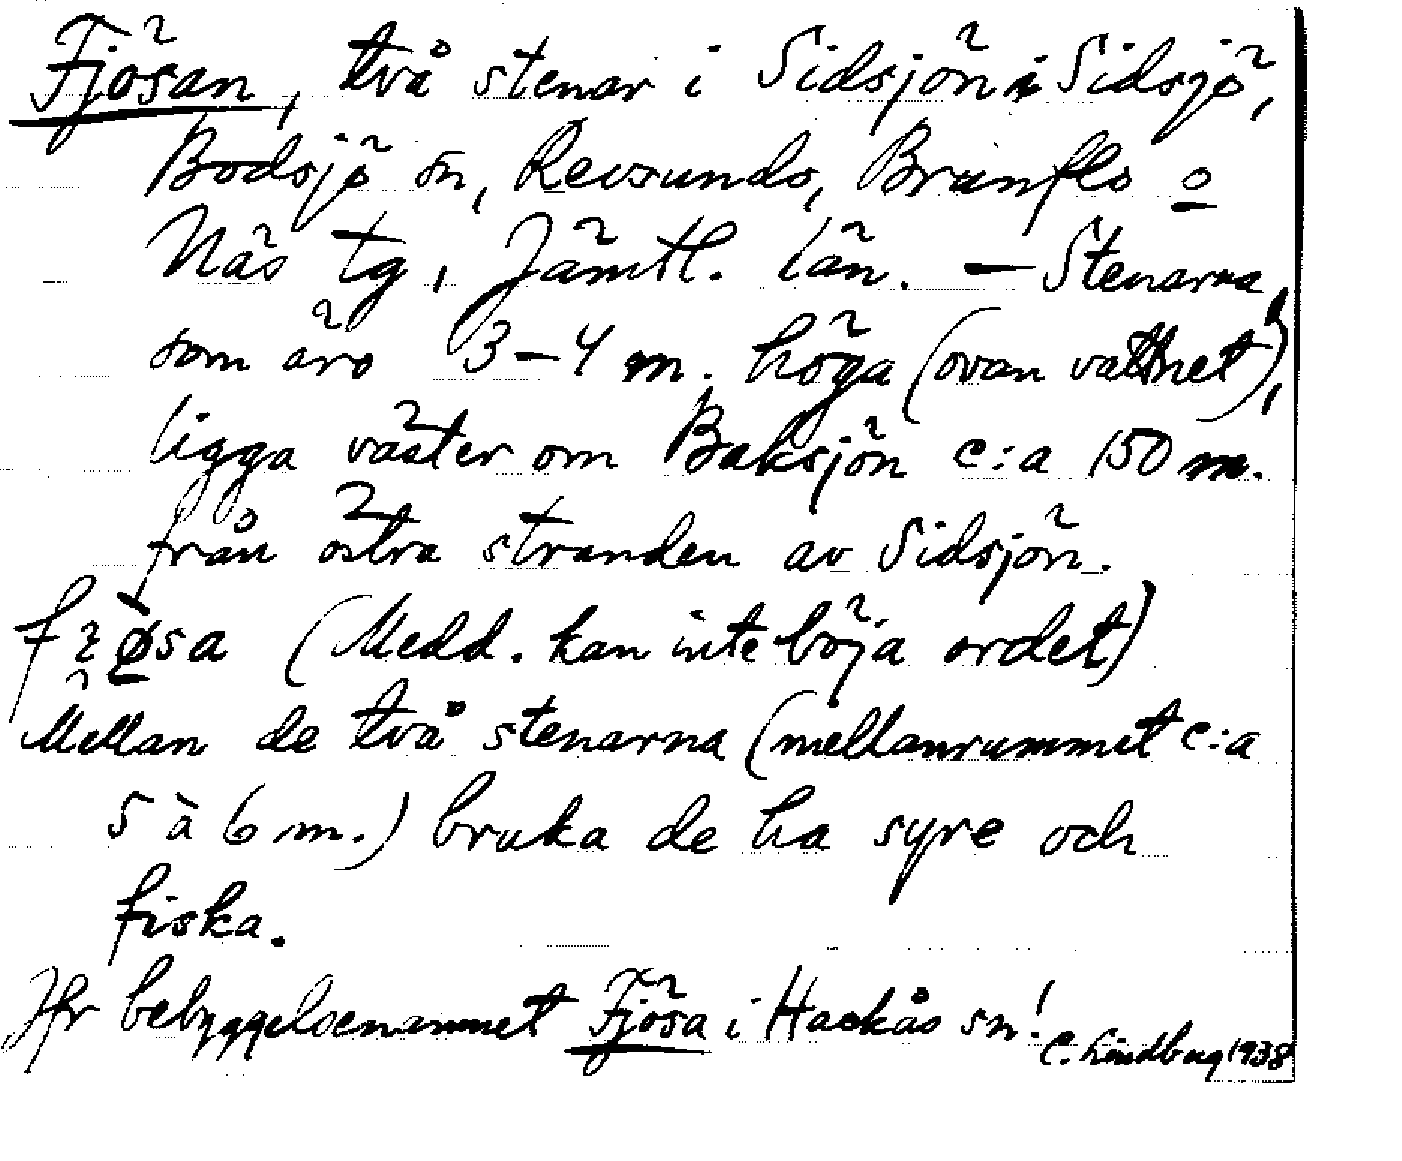 Fjösan, två stenar i Sidsjön i Sidsjö,
Bodsjö sn, Revsunds, Brunflo o
Näs tg, Jämtl. län. — Stenarna,
som äro 3–4 m. höga (ovan vattnet),
ligga väster om Baksjön c:a 150 m.
från östra stranden av Sidsjön.
(Medd. kan inte böja ordet)
Mellan de två stenarna (mellanrummet c:a
5 à 6 m.) bruka de ha syre och
fiska.
Jfr bebyggelsenamnet Fjösa i Hackås sn!
C. Lindberg 1938